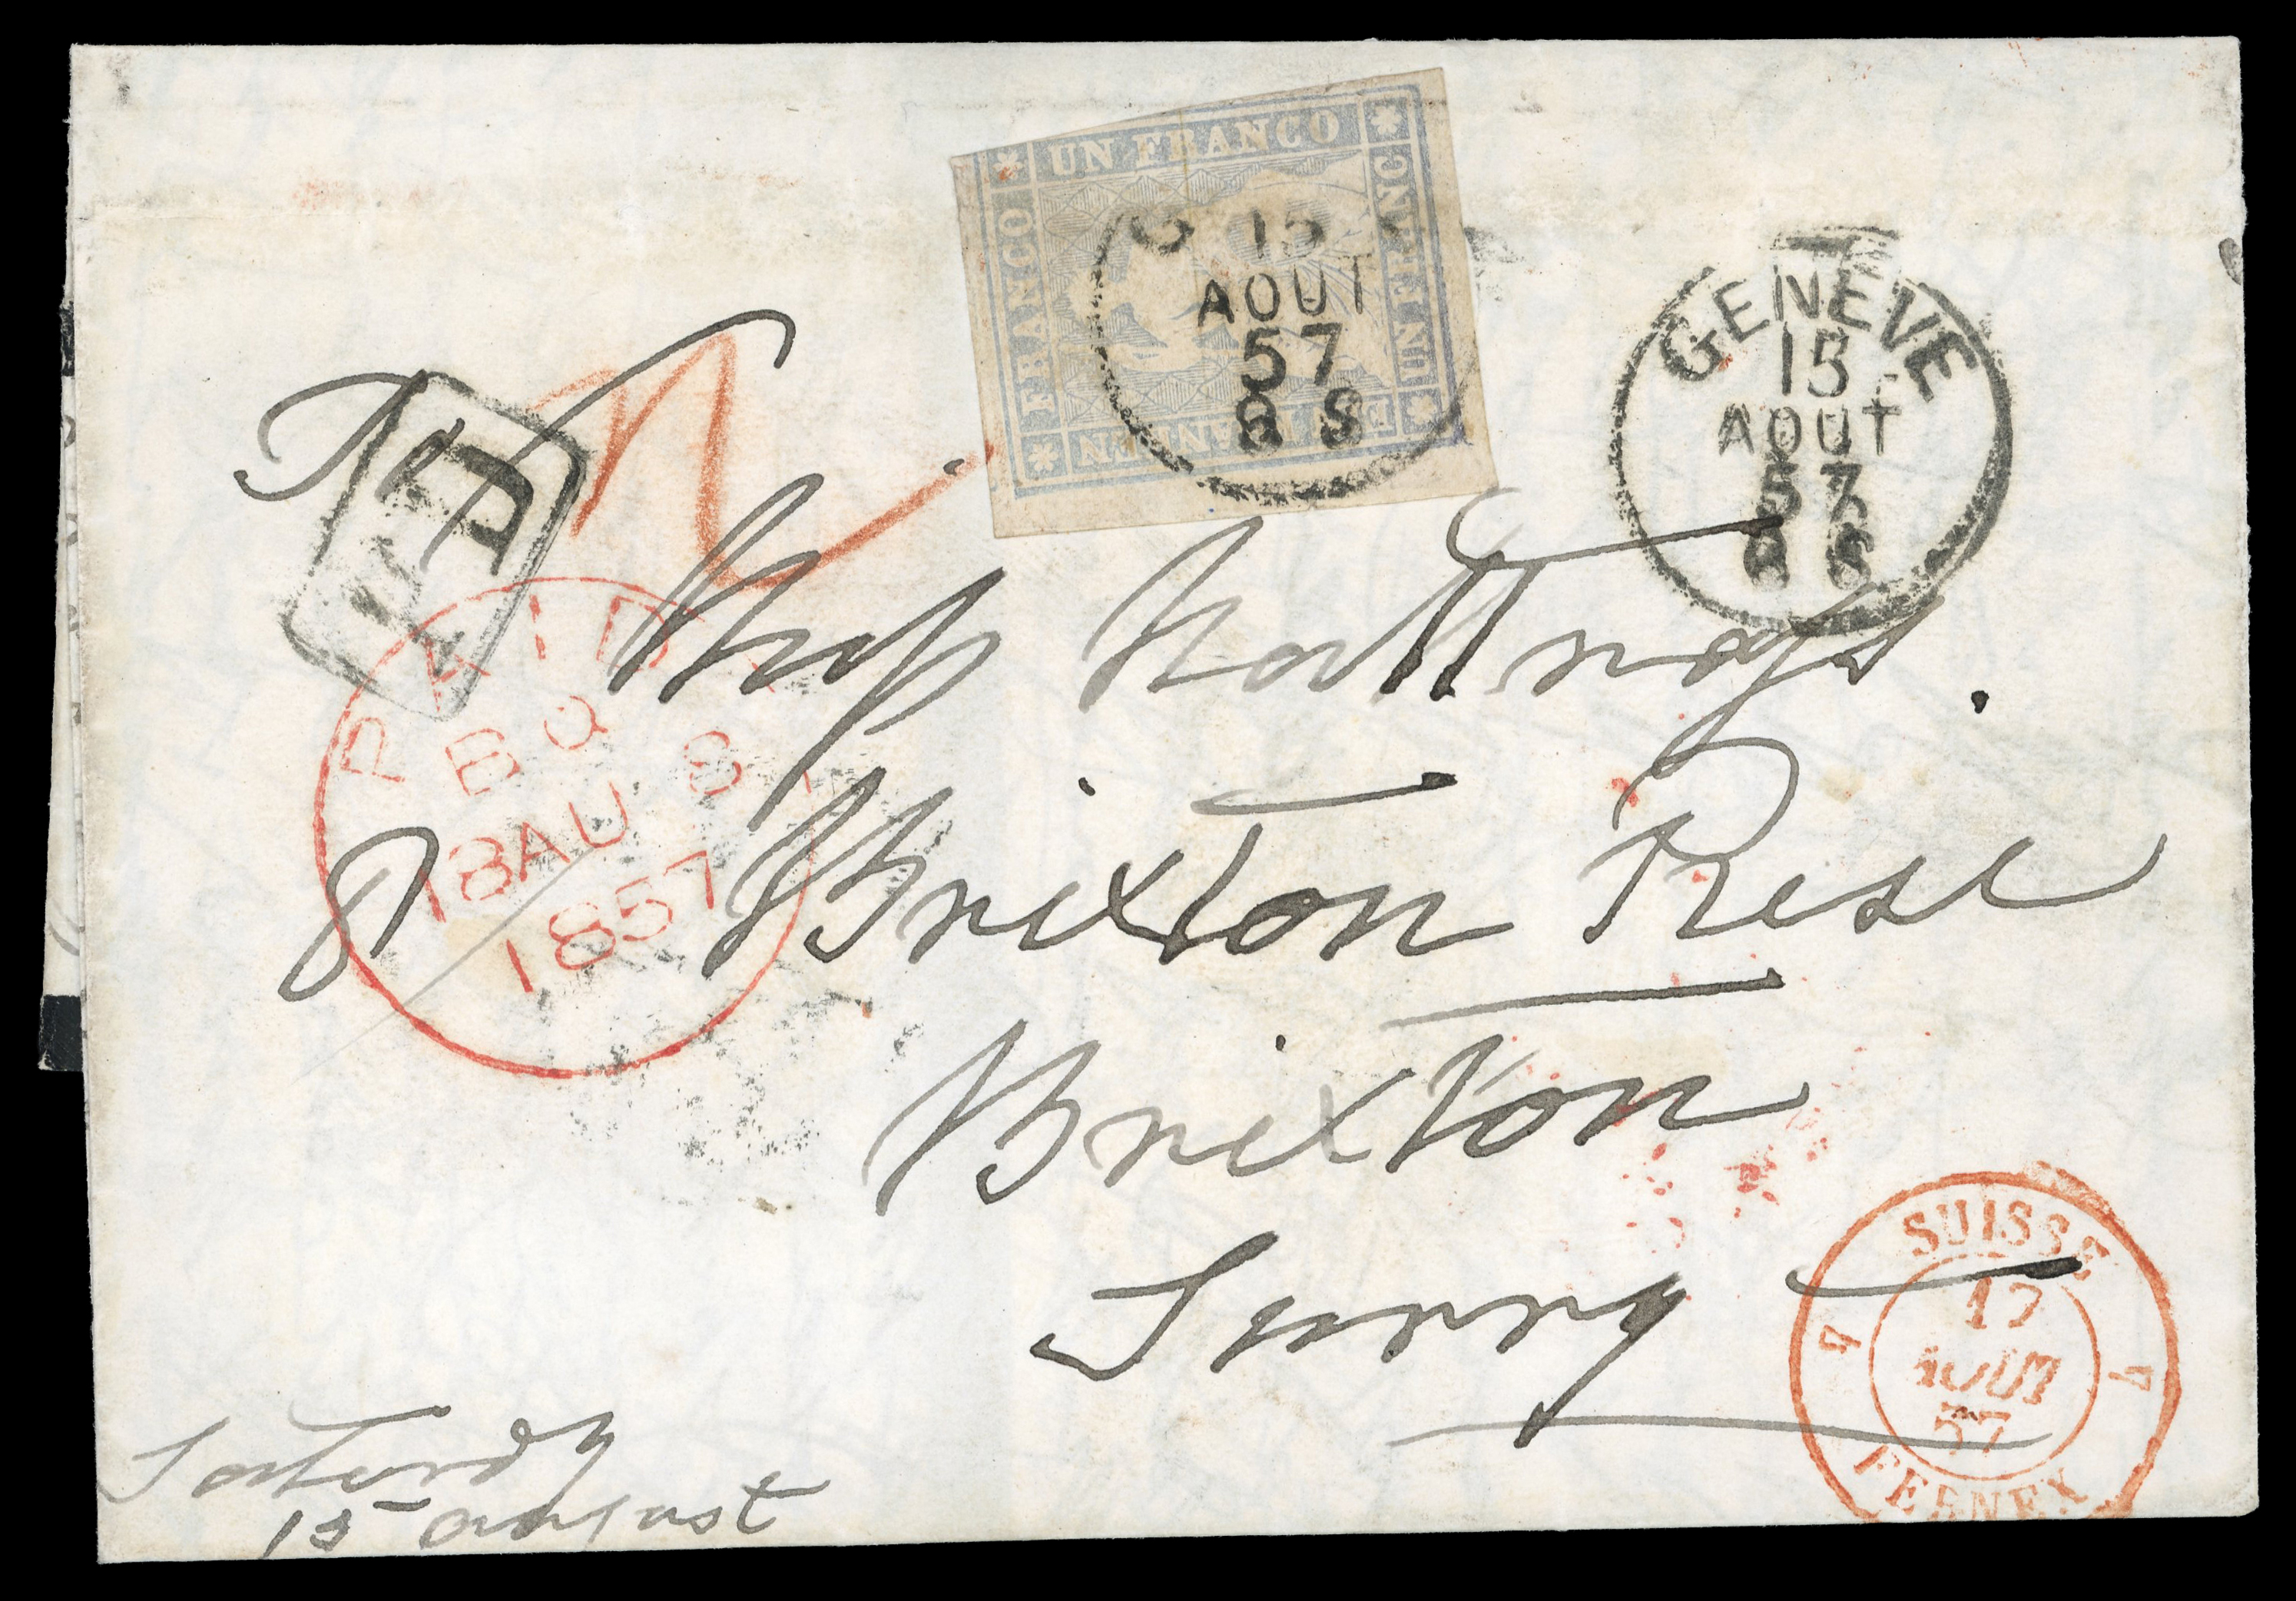 UN FRANCO
FRANCO
UN FRANC
G 15
AOUT
57
8 S
GENÈVE
15
AOUT
57
8 S
PD
PAID
BQ
18 AU
1857
Miss
8 Brixton Rise
Brixton
Surry
SUISSE
17
AOUT
57
4 4
FERNEX
Saturdy
15 august